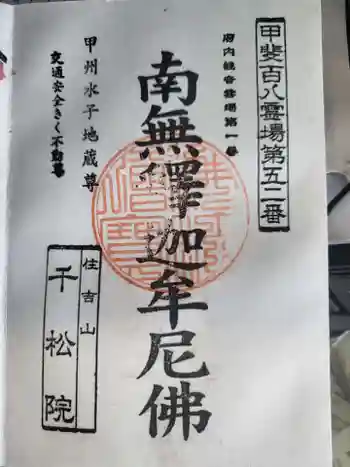 甲斐百八霊場第五二番
府内観音霊場第一番
南無釋迦牟尼佛
甲州水子地蔵尊
交通安全きく不動尊
住吉山
千松院
佛法僧寶